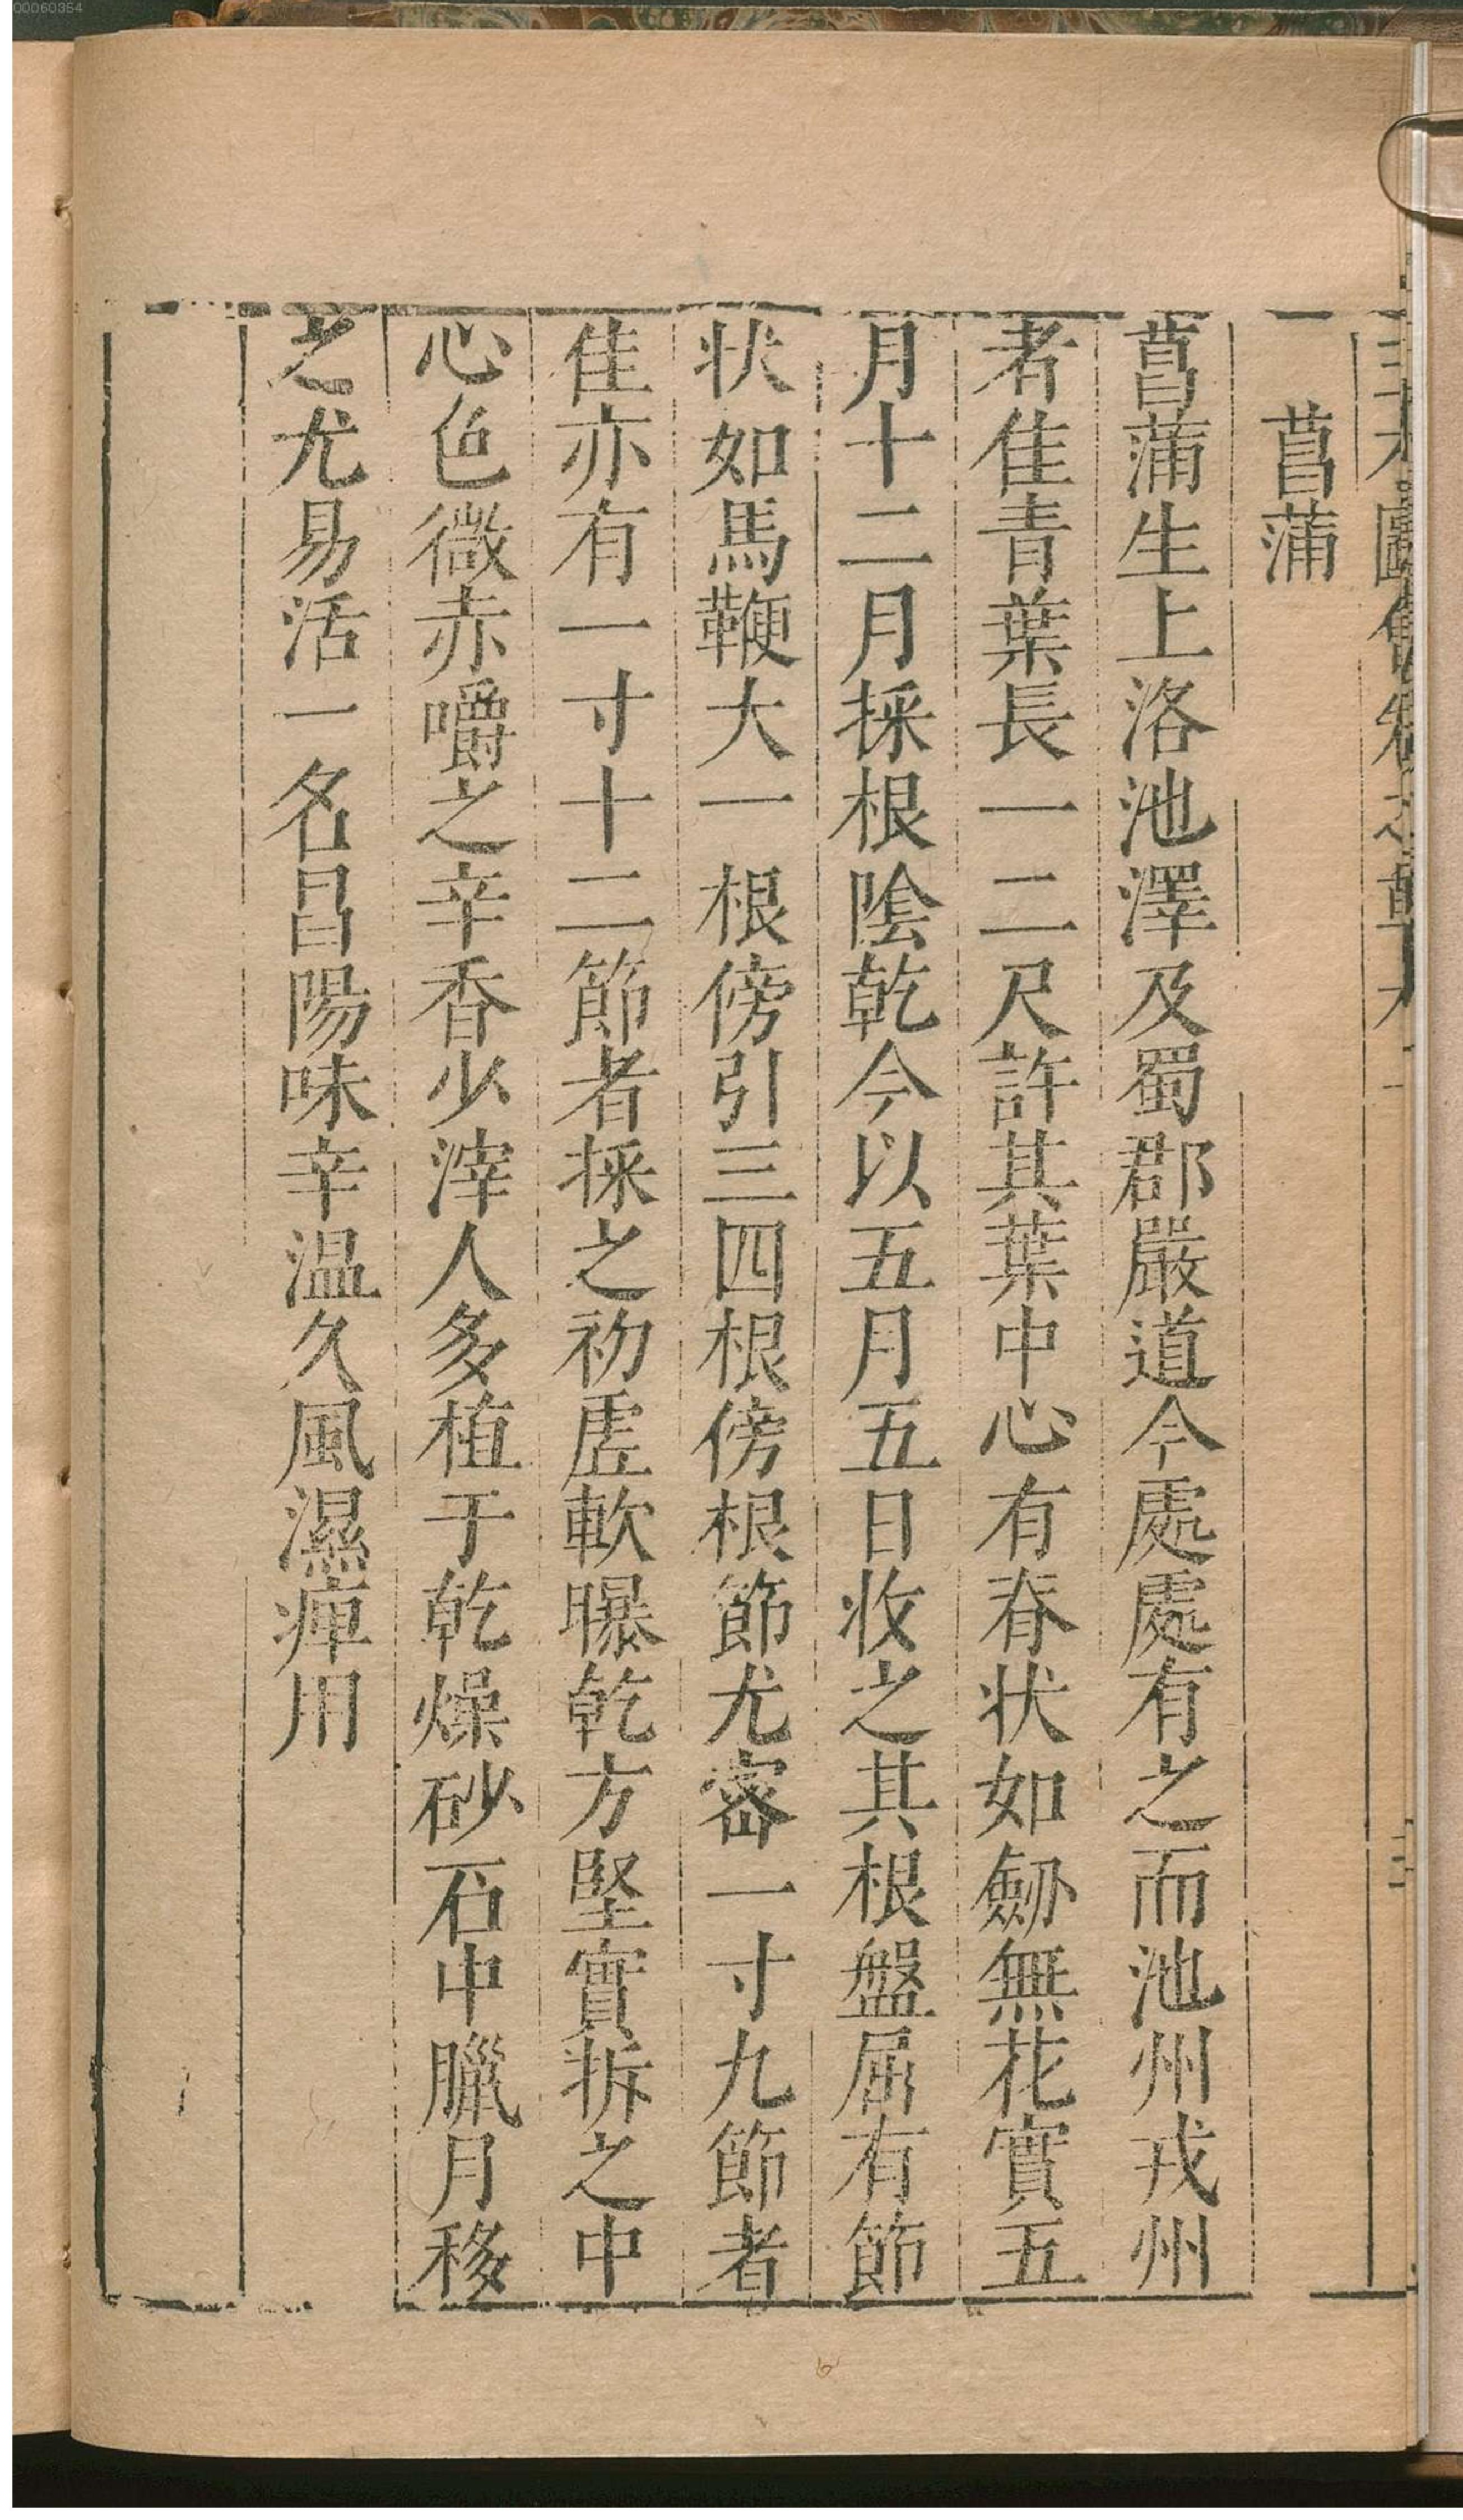 00060354
菖蒲
菖蒲生上洛池澤及蜀郡嚴道今處處有之而池州戎州
者佳青葉長一二尺許其葉中心有脊状如劒無花實五
月十二月採根隂乾今以五月五日收之其根盤屈有節
状如馬鞭大一根傍引三四根傍根節尤宻一寸九節者
佳亦有一寸十二節者採之初虚軟曝乾方堅實拆之中
心色微赤嚼之辛香少滓人多植于乾燥砂石中臘月移
之尤易活一名昌陽味辛温久風濕痺用